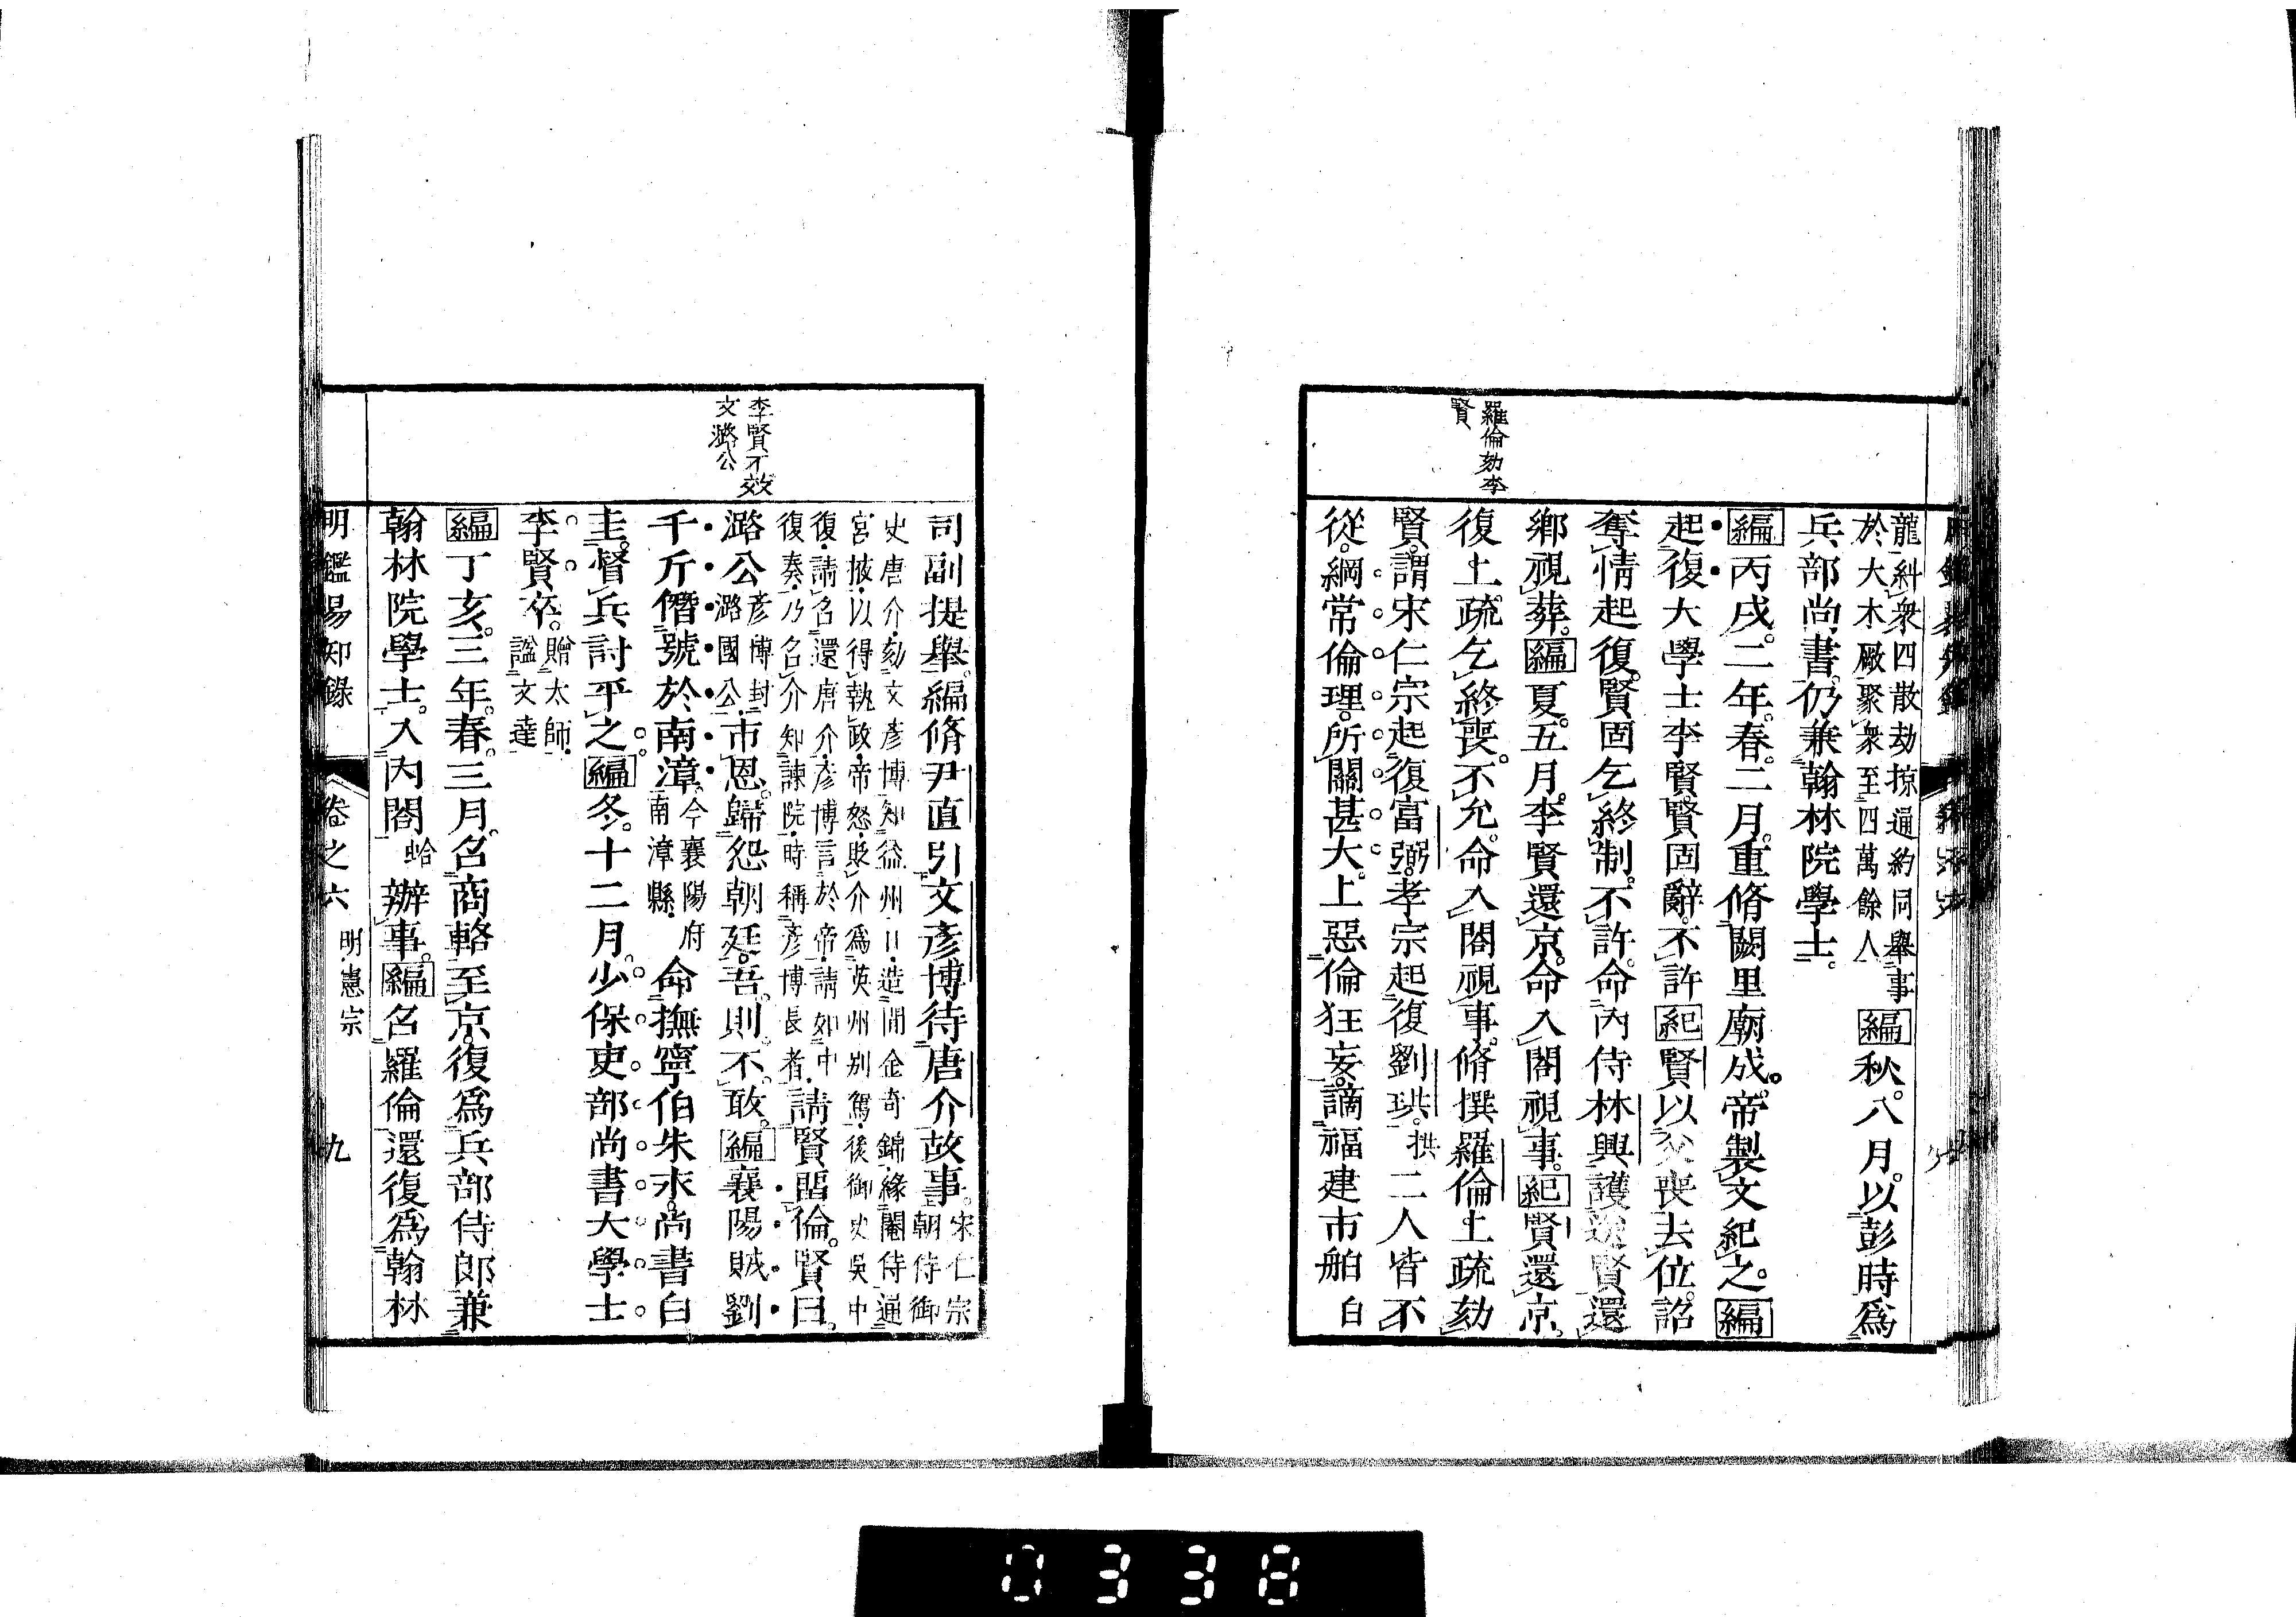 羅倫劾李
賢
龍糾衆四散劫掠逼約同舉事
於大木厰聚衆至四萬餘人
編秋。八月。以彭時爲
兵部尚書。仍兼翰林院學士。
編丙戌。二年。春。二月。重脩闕里廟成。帝製文紀之。編
起復大學士李賢。賢固辭。不許紀賢以父喪去位。詔
奪情起復。賢固乞終制。不許。命內侍林興護送賢還
鄉視葬。編夏。五月。李賢還京。命入閣視事。紀賢還京。
復上疏乞終喪。不允。命入閣視事。脩撰羅倫上疏劾
賢。謂宋仁宗起復富弼。孝宗起復劉珙。拱二人皆不
從。綱常倫理。所關甚大。上惡倫狂妄。謫福建市舶白
李賢不效
文潞公
司副提舉。編脩尹直引文彥博待唐介故事。宋仁宗
朝侍御
史唐介・劾文彥博知益州日・造間金奇錦・緣閹侍通
宮掖・以得執政・帝怒・貶介爲英州别駕・後御史吳中
復・請召還唐介・彥博言於帝・請如中
復奏・乃召介知諫院・時稱彥博長者・
請賢畱倫。賢曰。
潞公彥博封
潞國公市恩。歸怨朝廷。吾則不敢。編襄陽賊劉
千斤僭號於南漳。今襄陽府
南漳縣命撫寧伯朱永。尚書白
圭。督兵討平之。編冬。十二月。少保吏部尚書大學士
李賢卒。贈太師・
諡文達
編丁亥。三年。春。三月。召商輅至京。復爲兵部侍郎兼
翰林院學士。入內閣蛤辦事。編召羅倫還復爲翰林
明鑑易知錄 卷之六 明憲宗 九
0338